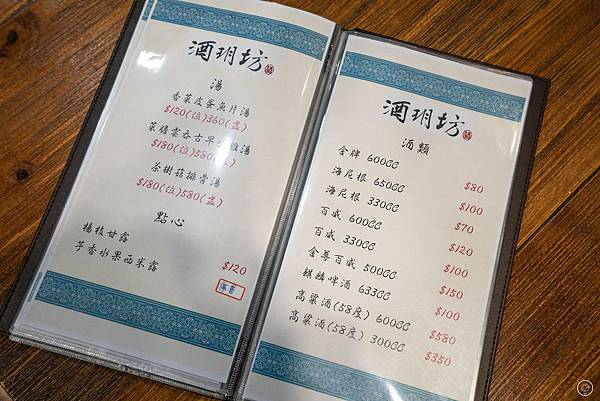 酒玥坊
湯
香菜皮蛋魚片湯
$120(位)360(盅)
菜膽雲吞古早雞湯
$180(位)580(盅)
茶樹菇排骨湯
$180(位)580(盅)
點心
楊枝甘露
芋香水果西米露 $120
酒玥坊
酒類
金牌 600CC $80
海尼根 650CC $100
海尼根 330CC $70
百威 600CC $120
百威 330CC $100
金尊百威 500CC $150
麒麟啤酒 633CC $100
高粱酒(58度) 600CC $580
高粱酒(58度) 300CC $350